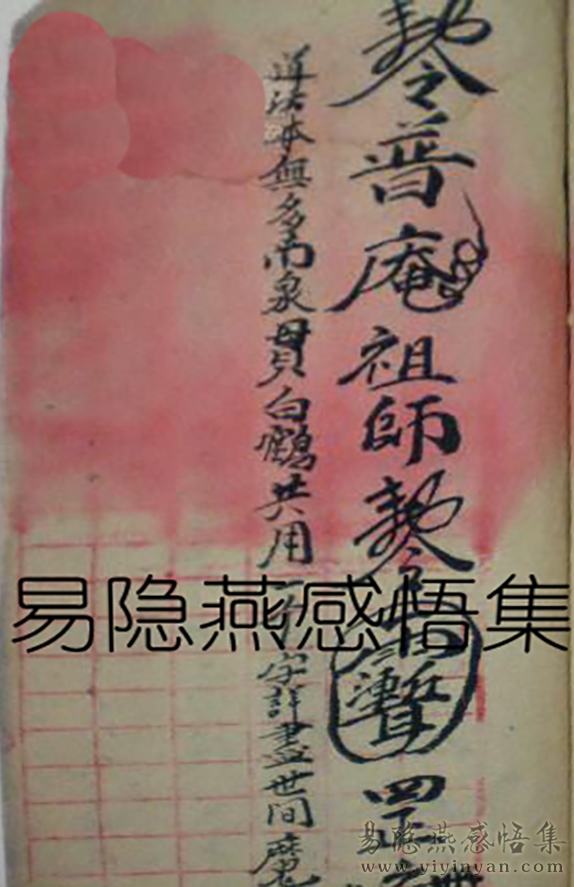 勅令普庵祖師勅令
道法本無多南泉貫白鶴共用字詳盡世間魔
易隐燕感悟集
易隐燕感悟集
www.yiyinyan.com